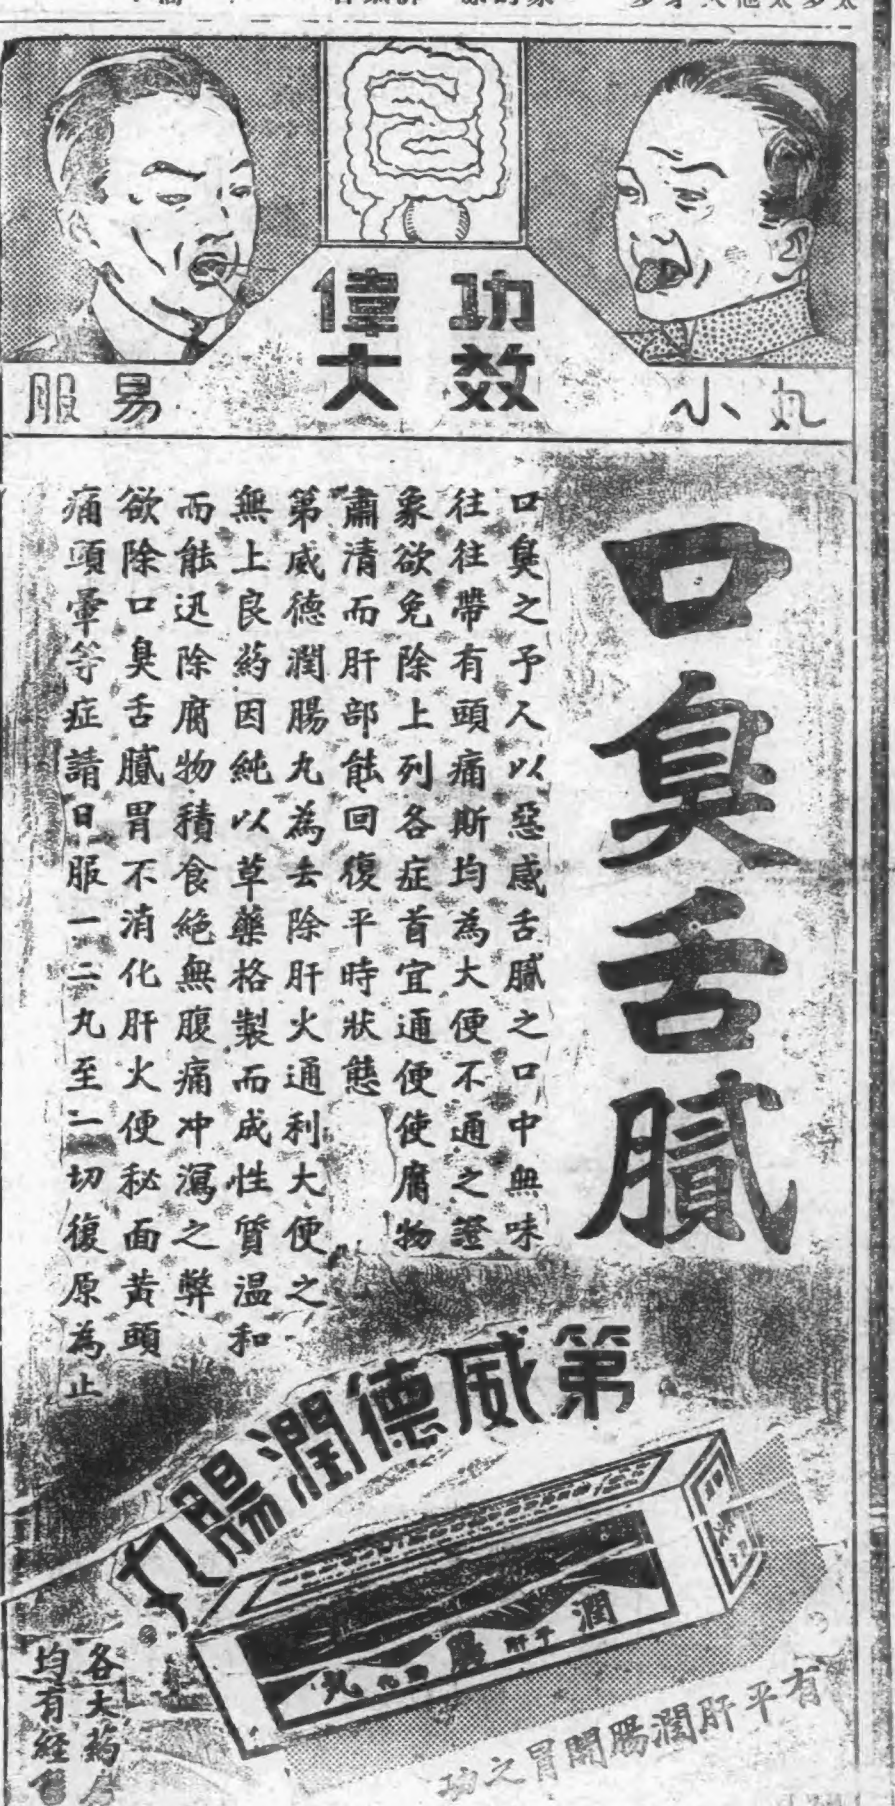 丸小
功效
偉大
易服
口臭舌膩
口臭之予人以惡感舌膩之口中無味
往往帶有頭痛斯均為大便不通之證
象欲免除上列各症首宜通便使腐物
肅清而肝部能回復平時狀態
第威德潤腸丸為去除肝火通利大便之
無上良葯因純以草藥格製而成性質温和
而能迅除腐物積食絕無腹痛冲瀉之弊
欲除口臭舌膩胃不消化肝火便秘面黃頭
痛頭暈等症請日服一二丸至一切復原為止
第威德潤腸丸
潤 平肝 腸 丸
有平肝潤腸開胃之功
各大葯房
均有經售